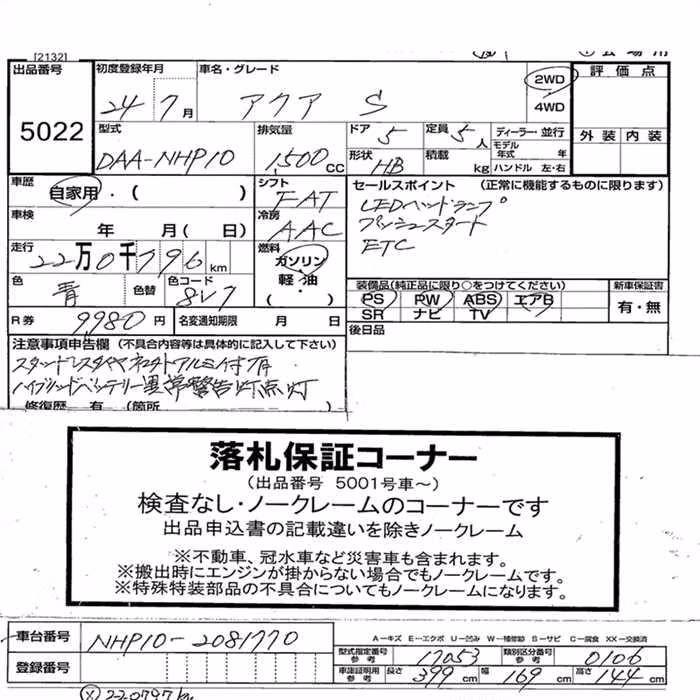 [2132]
出品番号 初度登録年月 車名・グレード 2WD 評価点
24 7月 アクア S 4WD
5022 外装 内装
型式 排気量 ドア 定員 ディーラー・並行
DAA-NHP10 1,500cc 5 5人 モデル年式 年
形状 積載 HB kg ハンドル 左・右
車歴 自家用・( ) シフト FAT セールスポイント (正常に機能するものに限ります)
LEDヘッドランプ
車検 年 月 (日) 冷房 AAC プッシュスタート
ETC
走行 22万0千796km 燃料 ガソリン
軽油
( )
色 青 色替 色コード 8V7 装備品(純正品に限り○をつけてください) 新車保証書
PS PW ABS エアB 有・無
SR ナビ TV
R券 9980円 名変通知期限 月 日 後日品
注意事項申告欄 (不具合内容等は具体的に記入して下さい)
スタッドレスタイヤ アルミ付有
ハイブリッドバッテリー異常警告灯点灯
修復歴 有 (箇所
落札保証コーナー
(出品番号 5001号車~)
検査なし・ノークレームのコーナーです
出品申込書の記載違いを除きノークレーム
※不動車、冠水車など災害車も含まれます。
※搬出時にエンジンが掛からない場合でもノークレームです。
※特殊特装部品の不具合についてもノークレームになります。
車台番号 NHP10-2081770 A－キズ E－エクボ U－凹み W－補修跡 S－サビ C－腐食 XX－交換済
型式指定番号 参考 17053 類別区分番号 参考 0106
登録番号 車庫証明用 参考 長さ 399cm 幅 169cm 高さ 144cm
220797km